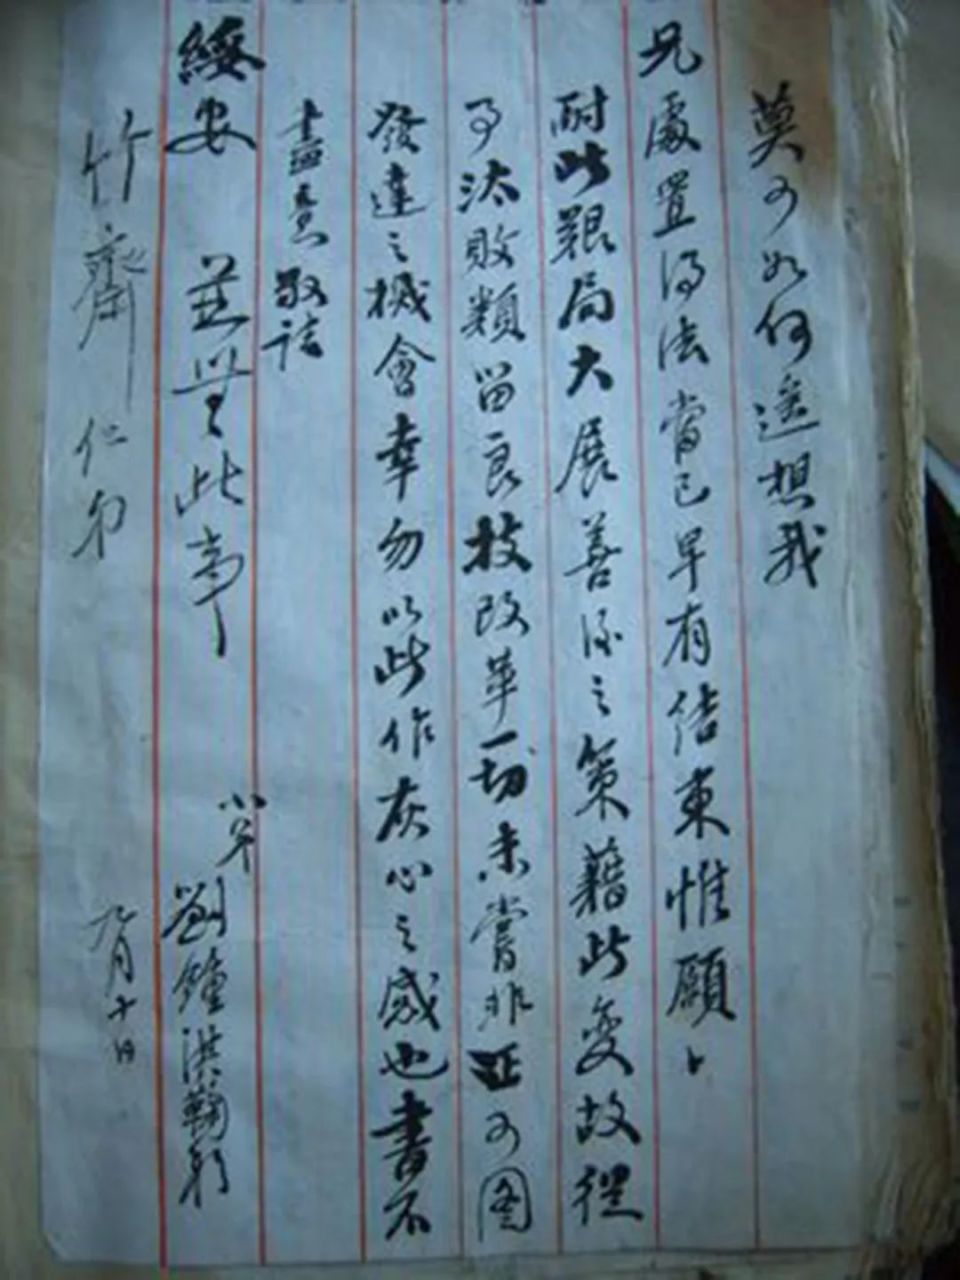 莫可如何遥想我
兄處置得法當已早有结束惟願
耐此艱局大展善後之策藉此变故從
事汰敗類留良技改革一切未嘗非正可图
發達之機會幸勿以此作灰心之感也書不
盡意敬請
綏安 並無此 小弟劉鐘洪鞠躬
竹齋仁 九月十日